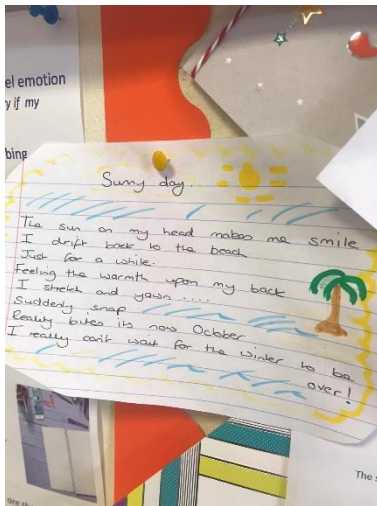 el emotion
y if my
bing
Sunny day...
The sun on my head makes me smile
I drift back to the beach
Just for a while.
Feeling the warmth upon my back
I stretch and yawn ....
Suddenly snap
Reality bites its now October
I really can't wait for the winter to be
over!
are th
The s